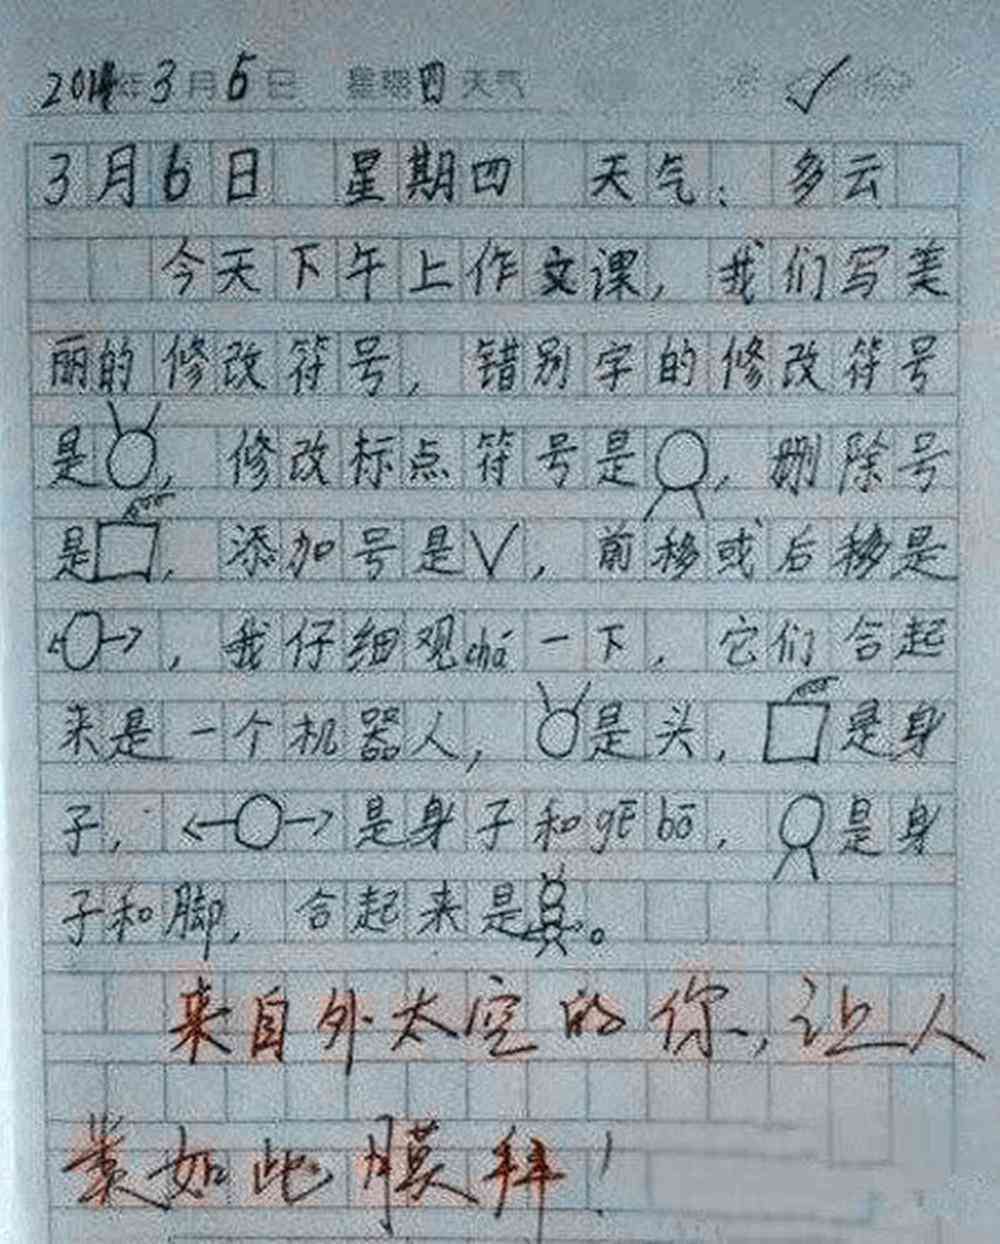 2014年3月6日 星期四 天气
3月6日 星期四 天气：多云
今天下午上作文课，我们写美
丽的修改符号，错别字的修改符号
是，修改标点符号是，删除号
是，添加号是∨，前移或后移是
，我仔细观chá一下，它们合起
来是一个机器人，是头，是身
子，是身子和gē bō，是身
子和脚，合起来是。
来自外太空的你，让人
如此膜拜！